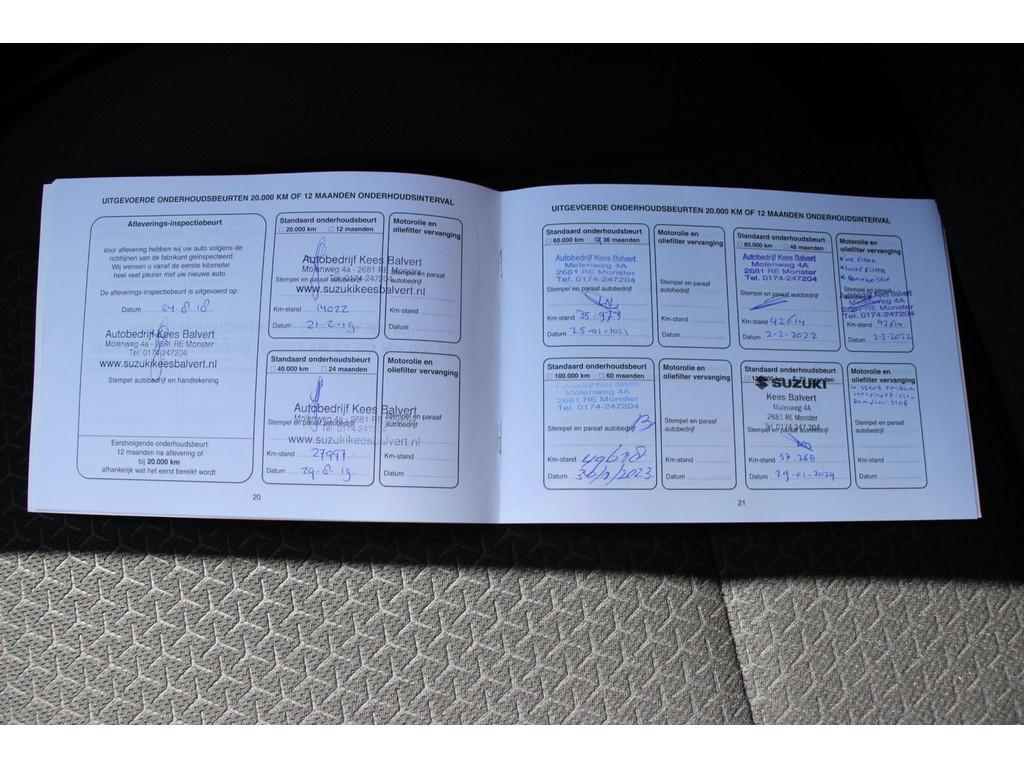 UITGEVOERDE ONDERHOUDSBEURTEN 20.000 KM OF 12 MAANDEN ONDERHOUDSINTERVAL
Afleverings-inspectiebeurt
Voor aflevering hebben wij uw auto volgens de
richtlijnen van de fabrikant geïnspecteerd.
Wij wensen u vanaf de eerste kilometer
heel veel plezier met uw nieuwe auto
De afleverings-inspectiebeurt is uitgevoerd op:
Datum 24.8.18
Autobedrijf Kees Balvert
Molenweg 4a - 2681 RE Monster
Tel: 0174-247204
www.suzukikeesbalvert.nl
Stempel autobedrijf en handtekening
Eerstvolgende onderhoudsbeurt:
12 maanden na aflevering of
bij 20.000 km
afhankelijk wat het eerst bereikt wordt.
Standaard onderhoudsbeurt
20.000 km 12 maanden
Autobedrijf Kees Balvert
Molenweg 4a - 2681 RE Monster
Tel: 0174-247204
www.suzukikeesbalvert.nl
Km-stand 14022
Datum 21-2-19
Motorolie en
oliefilter vervanging
Stempel en paraaf
autobedrijf
Km-stand
Datum
Standaard onderhoudsbeurt
40.000 km 24 maanden
Autobedrijf Kees Balvert
Molenweg 4a - 2681 RE Monster
Stempel en paraaf autobedrijf
Tel: 0174-247204
www.suzukikeesbalvert.nl
Km-stand 27997
Datum 29-8-19
Motorolie en
oliefilter vervanging
Stempel en paraaf
autobedrijf
Km-stand
Datum
20
UITGEVOERDE ONDERHOUDSBEURTEN 20.000 KM OF 12 MAANDEN ONDERHOUDSINTERVAL
Standaard onderhoudsbeurt
60.000 km 36 maanden
Autobedrijf Kees Balvert
Molenweg 4A
2681 RE Monster
Tel. 0174-247204
Stempel en paraaf autobedrijf
Km-stand 35.973
Datum 25-01-2021
Motorolie en
oliefilter vervanging
Stempel en paraaf
autobedrijf
Km-stand
Datum
Standaard onderhoudsbeurt
80.000 km 48 maanden
Autobedrijf Kees Balvert
Molenweg 4A
2681 RE Monster
Tel. 0174-247204
Stempel en paraaf autobedrijf
Km-stand 42614
Datum 2-2-2022
Motorolie en
oliefilter vervanging
Autobedrijf Kees Balvert
Molenweg 4A
2681 RE Monster
Tel. 0174-247204
Km-stand 42614
Datum 2-2-2022
Standaard onderhoudsbeurt
100.000 km 60 maanden
Autobedrijf Kees Balvert
Molenweg 4A
2681 RE Monster
Tel. 0174-247204
Stempel en paraaf autobedrijf
Km-stand 49678
Datum 30/1/2023
Motorolie en
oliefilter vervanging
Stempel en paraaf
autobedrijf
Km-stand
Datum
Standaard onderhoudsbeurt
SUZUKI
Kees Balvert
Molenweg 4A
2681 RE Monster
Tel. 0174 247204
Stempel en paraaf autobedrijf
Km-stand 57.268
Datum 29-01-2024
Motorolie en
oliefilter vervanging
Stempel en paraaf
autobedrijf
Km-stand
Datum
21